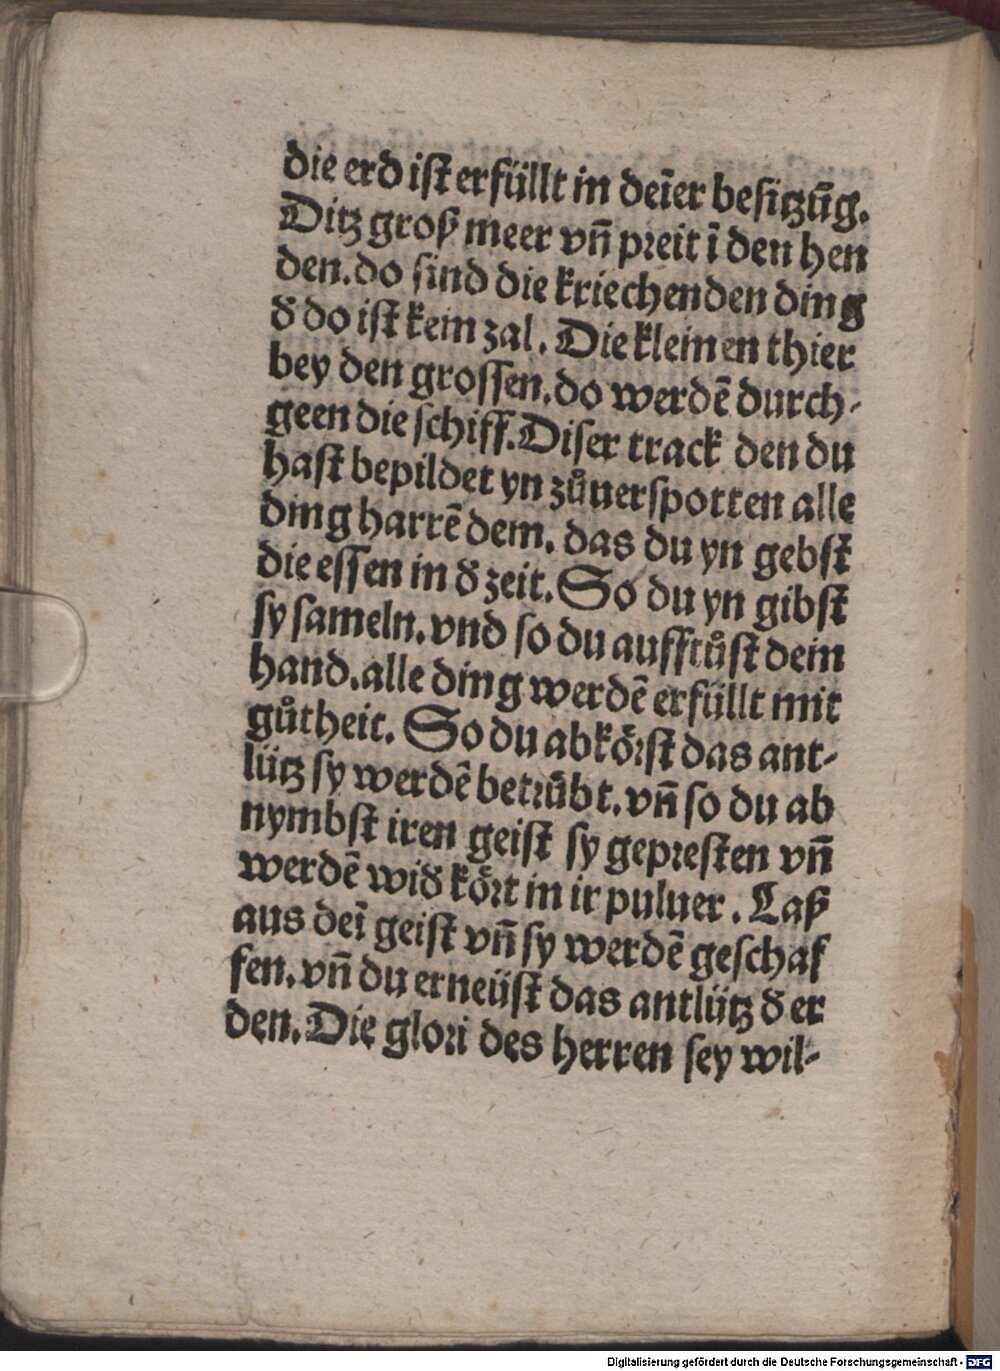 die erd ist erfüllt in deīer besitzūg.
Ditz groß meer vn̄ preit ī den hen
den. do sind die kriechenden ding
đ do ist kein zal. Die kleinen thier
bey den grossen. do werdē durch-
geen die schiff. Diser track den du
hast bepildet yn zůuerspotten alle
ding harrē dem. das du yn gebst
die essen in đ zeit. So du yn gibst
sy sameln. vnd so du aufftůst dein
hand. alle ding werdē erfüllt mit
gůtheit. So du abkörst das ant-
lütz sy werdē betrübt. vn̄ so du ab
nymbst iren geist sy gepresten vn̄
werdē wiđ kört in ir puluer. Laß
aus deī geist vn̄ sy werdē geschaf
fen. vn̄ du erneüst das antlütz đ er
den. Die glori des herren sey wil-
Digitalisierung gefördert durch die Deutsche Forschungsgemeinschaft - DFG